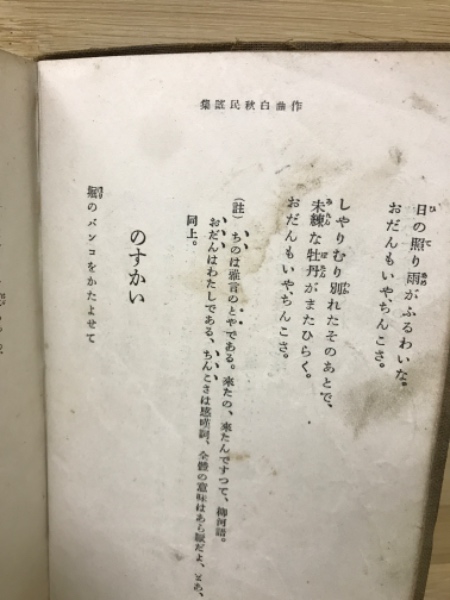 作曲白秋民謡集
日の照り雨がふるわいな。
おだんもいやちんこさ。
しやりむり別れたそのあとで、
未練な牡丹がまたひらく。
おだんもいやちんこさ。
(註) ちのは雅言のとやである。来たの、来たんですつて、柳河語。
おだんはわたしである、ちんこさは感嘆詞、全體の意味はあら厭だよ、とあ、
同上。
のすかい
堀のバンコをかたよせて